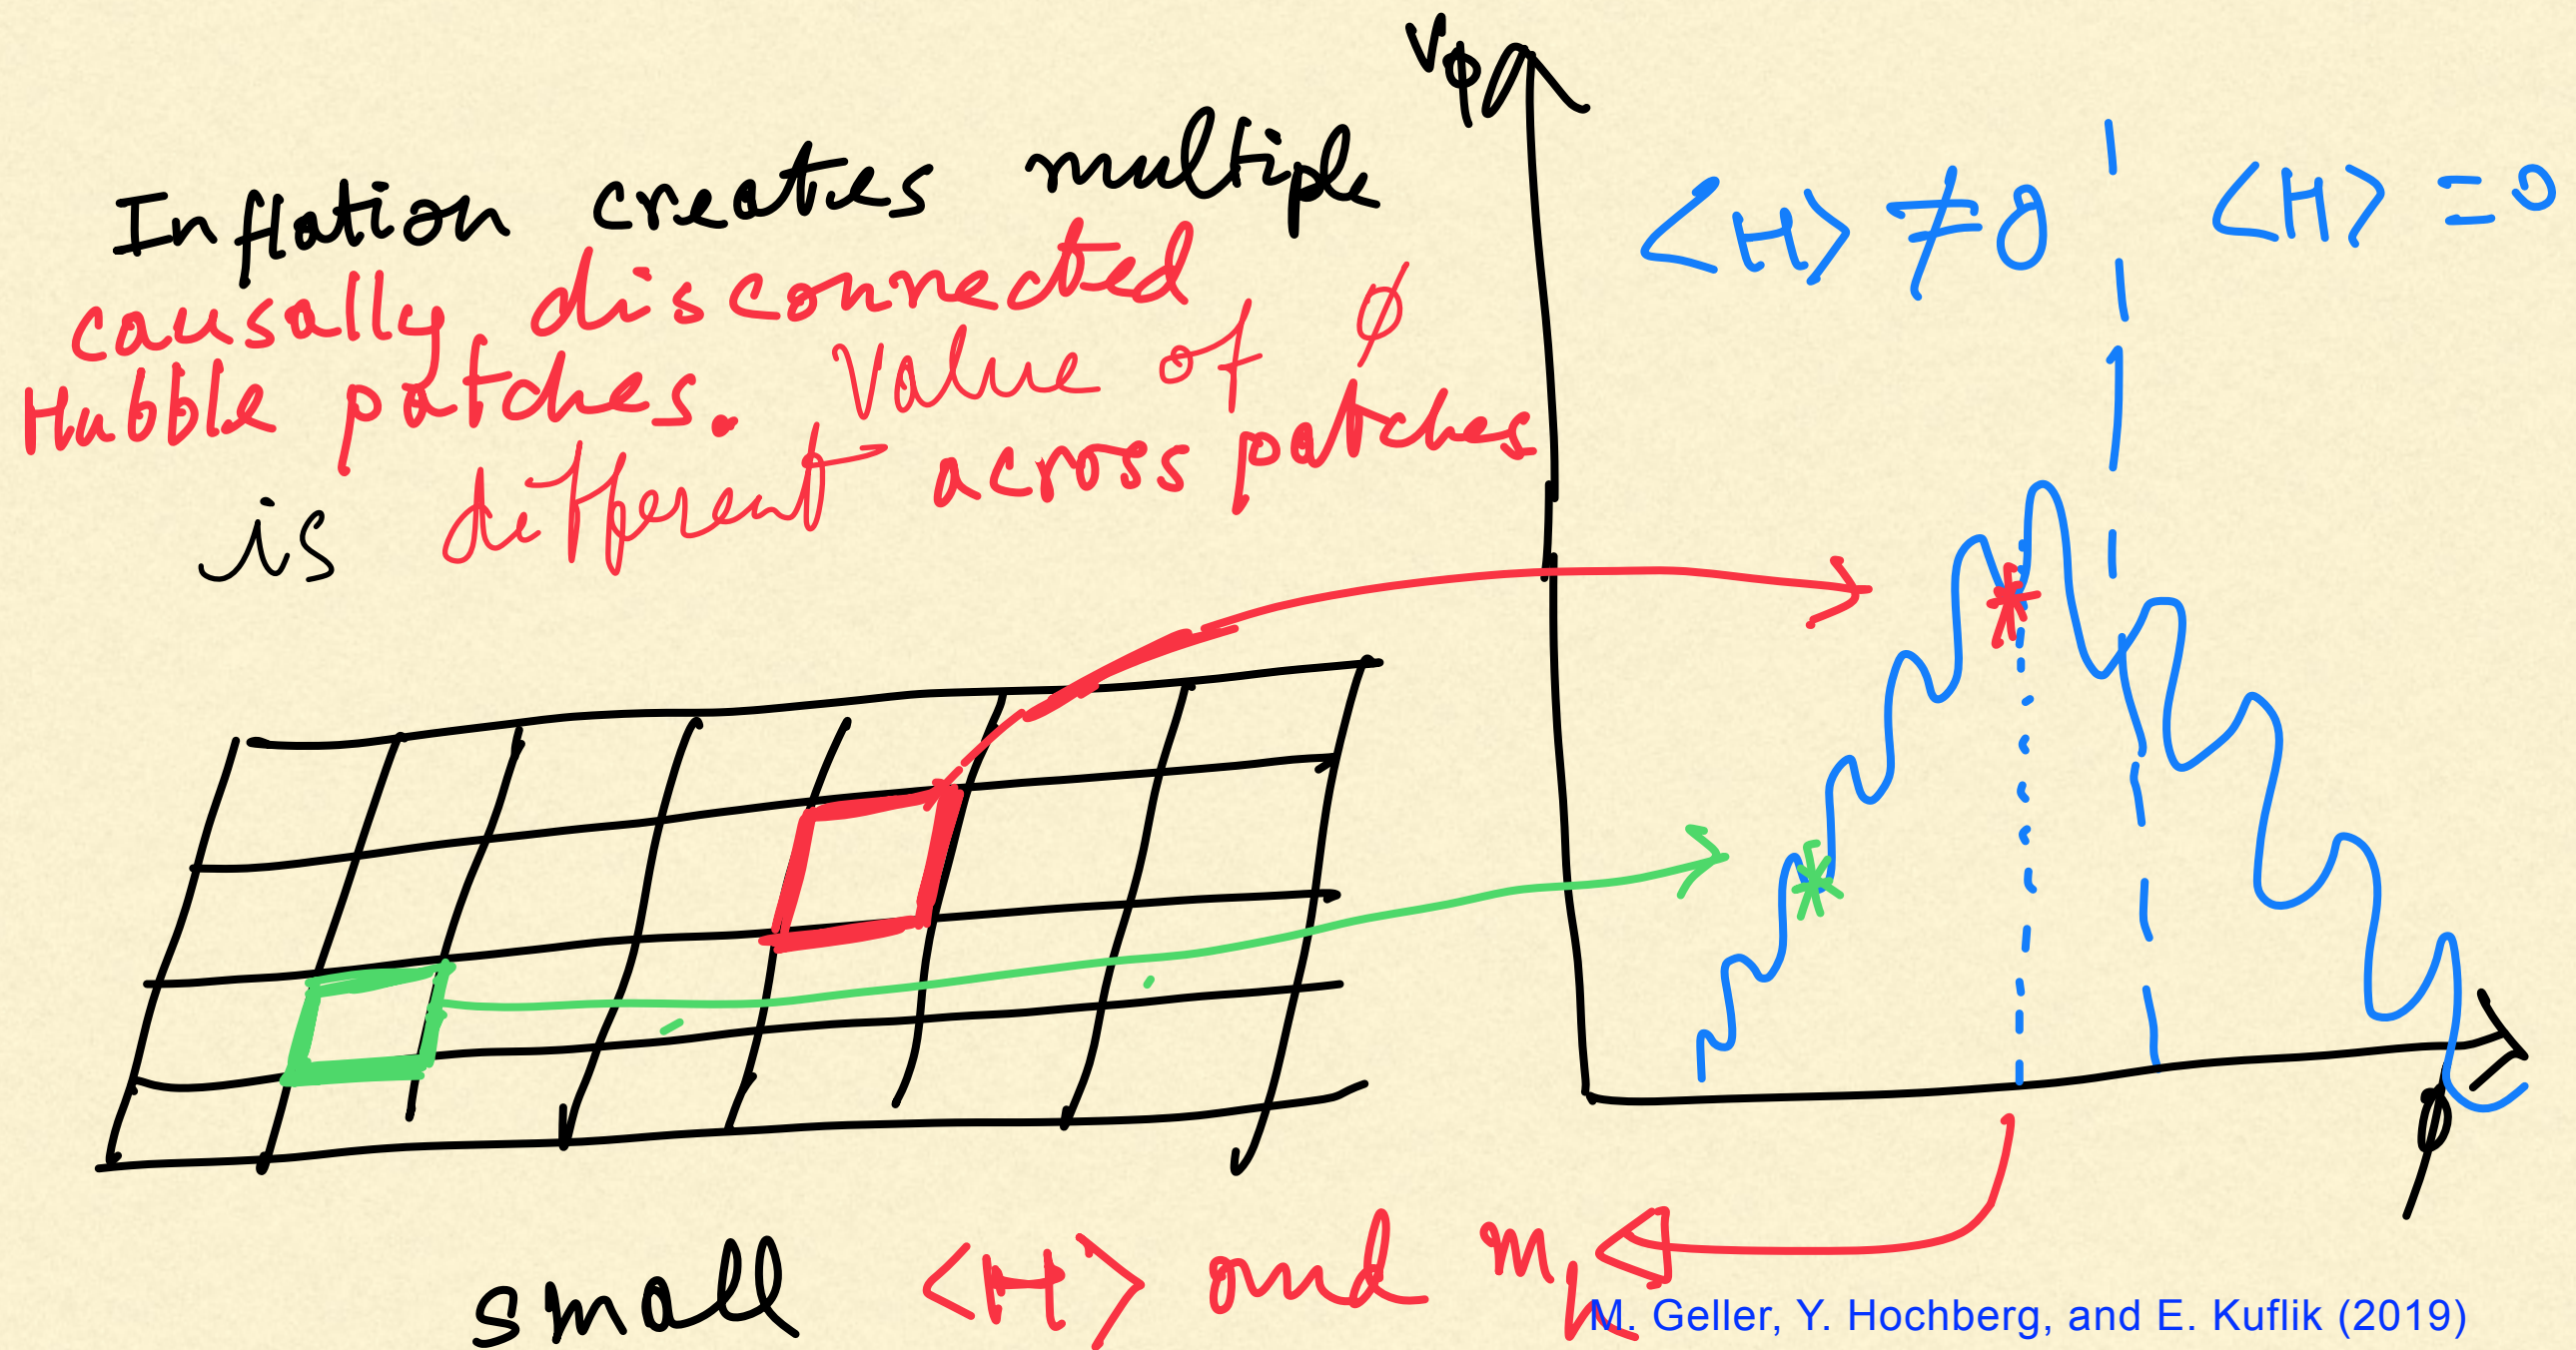 Inflation creates multiple
causally disconnected
Hubble patches. Value of ϕ
is different across patches
Vϕ
⟨H⟩ ≠ 0
⟨H⟩ = 0
ϕ
small ⟨H⟩ and m_h
M. Geller, Y. Hochberg, and E. Kuflik (2019)